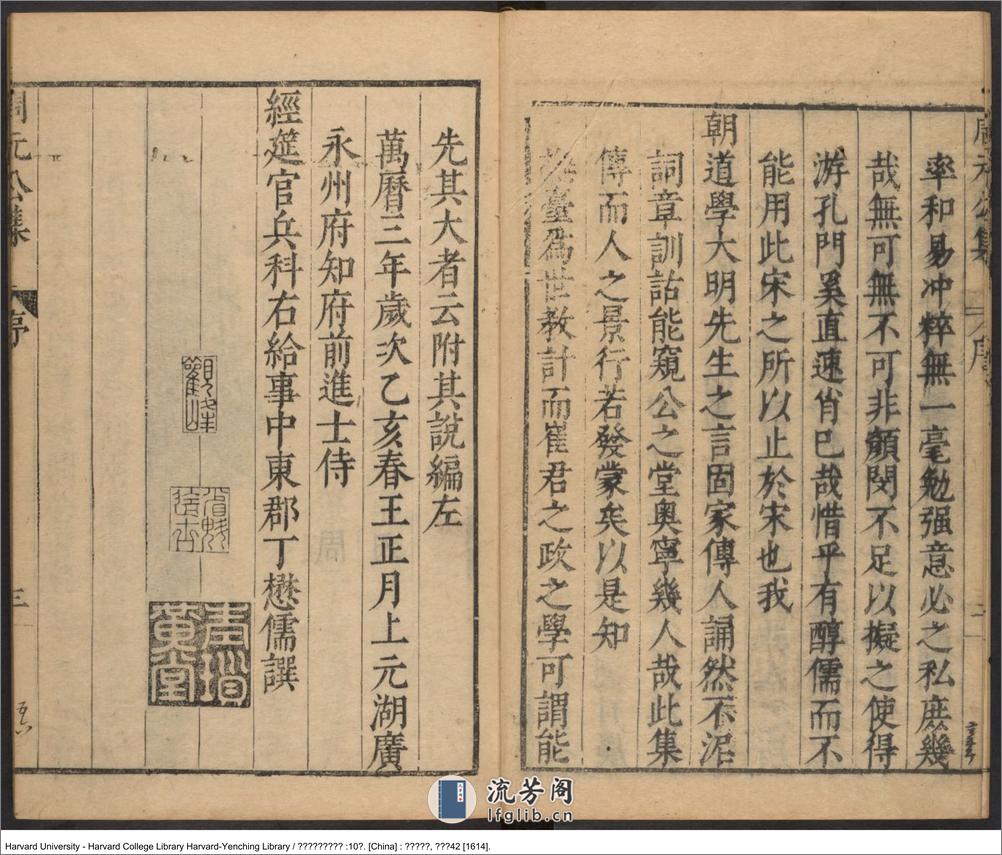 周元公集
序
二
率和易冲粹無一毫勉强意必之私庶幾
哉無可無不可非顏閔不足以擬之使得
游孔門奚直速肖已哉惜乎有醇儒而不
能用此宋之所以止於宋也我
朝道學大明先生之言固家傳人誦然不泥
詞章訓詁能窺公之堂奧寧幾人哉此集
傳而人之景行若發蒙矣以是知
臺爲世教計而崔君之政之學可謂能
先其大者云附其說編左
萬曆三年歲次乙亥春王正月上元湖廣
永州府知府前進士侍
經筵官兵科右給事中東郡丁懋儒譔
觀峰
周元公集
序
三
流芳阁
lfglib.cn
Harvard University - Harvard College Library Harvard-Yenching Library / ????????? :10?. [China] : ?????, ???42 [1614].